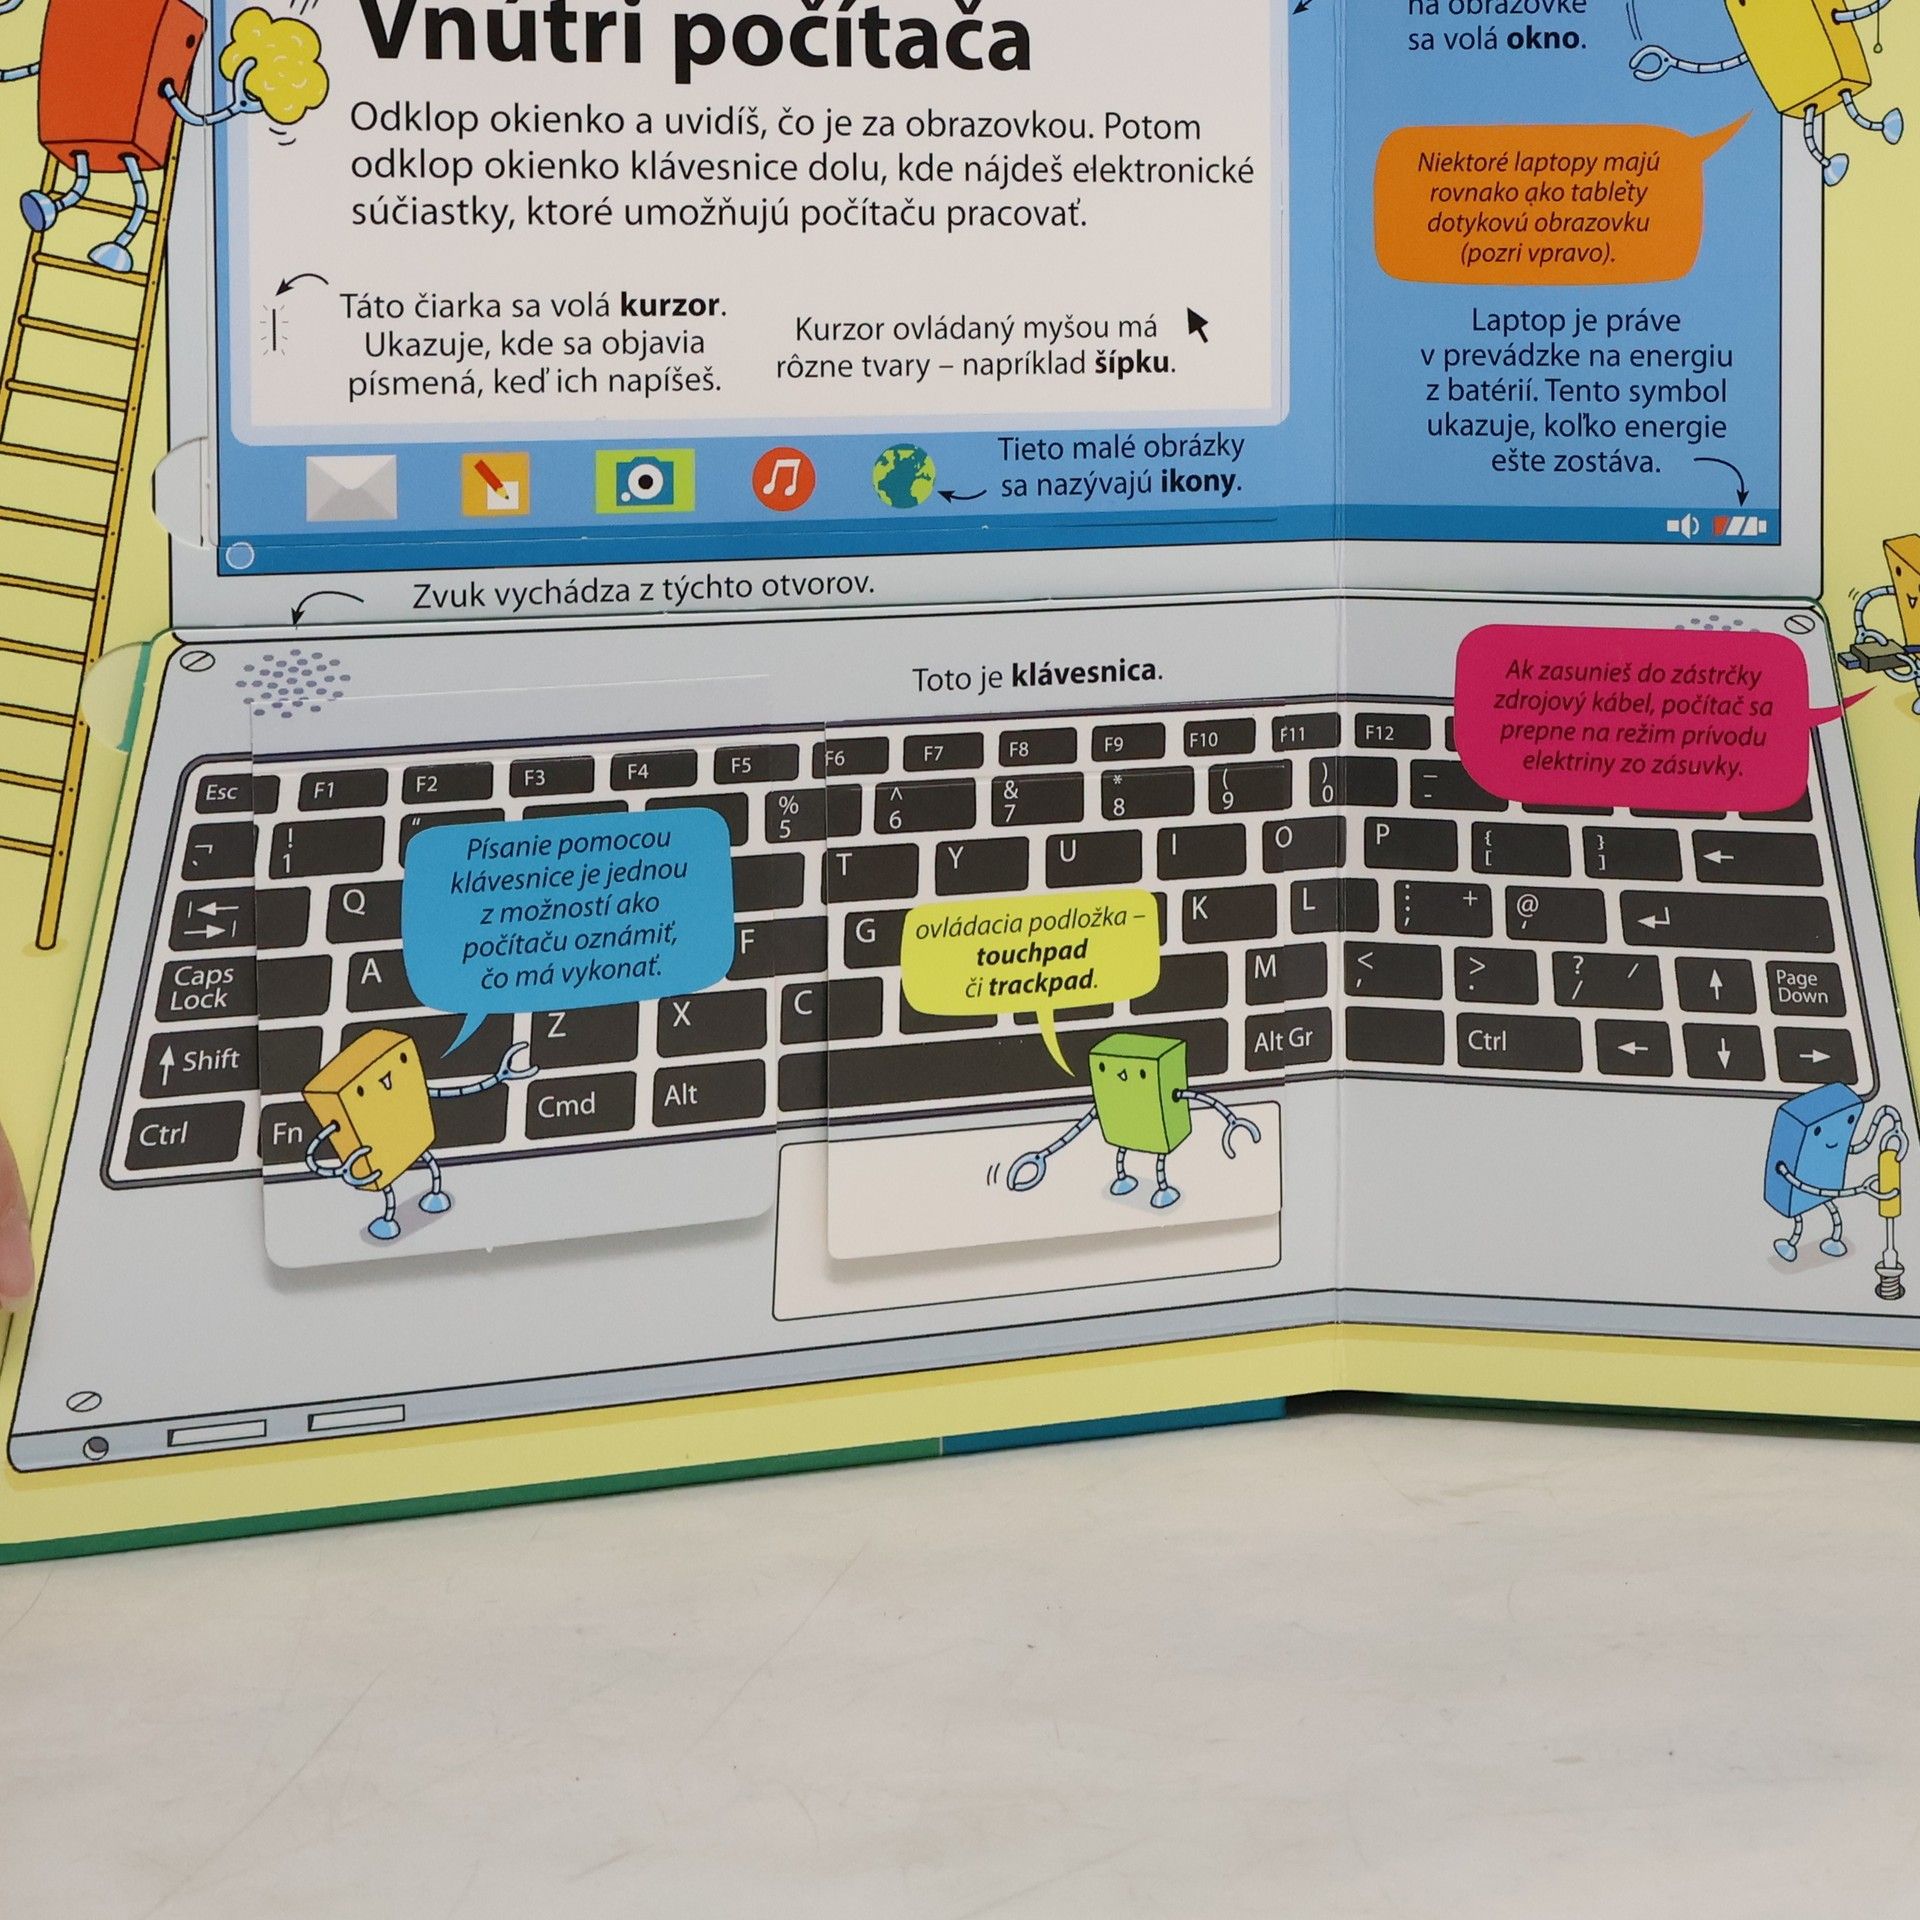 Vnútri počítača
Odklop okienko a uvidíš, čo je za obrazovkou. Potom
odklop okienko klávesnice dolu, kde nájdeš elektronické
súčiastky, ktoré umožňujú počítaču pracovať.
Táto čiarka sa volá kurzor.
Ukazuje, kde sa objavia
písmená, keď ich napíšeš.
Kurzor ovládaný myšou má
rôzne tvary – napríklad šípku.
Tieto malé obrázky
sa nazývajú ikony.
na obrazovke
sa volá okno.
Niektoré laptopy majú
rovnako ako tablety
dotykovú obrazovku
(pozri vpravo).
Laptop je práve
v prevádzke na energiu
z batérií. Tento symbol
ukazuje, koľko energie
ešte zostáva.
Zvuk vychádza z týchto otvorov.
Toto je klávesnica.
Ak zasunieš do zástrčky
zdrojový kábel, počítač sa
prepne na režim prívodu
elektriny zo zásuvky.
Esc F1 F2 F3 F4 F5 F6 F7 F8 F9 F10 F11 F12
¬ ! 1 " % 5 ^ 6 & 7 * 8 ( 9 ) 0 – -
Q T Y U I O P { [ } ] ←
A F G K L : ; + @ , ↵
Caps Lock
Z X C M < , > . ? / / ↑ Page Down
↑ Shift
Ctrl Fn Cmd Alt Alt Gr Ctrl ← ↓ →
Písanie pomocou
klávesnice je jednou
z možností ako
počítaču oznámiť,
čo má vykonať.
ovládacia podložka –
touchpad
či trackpad.